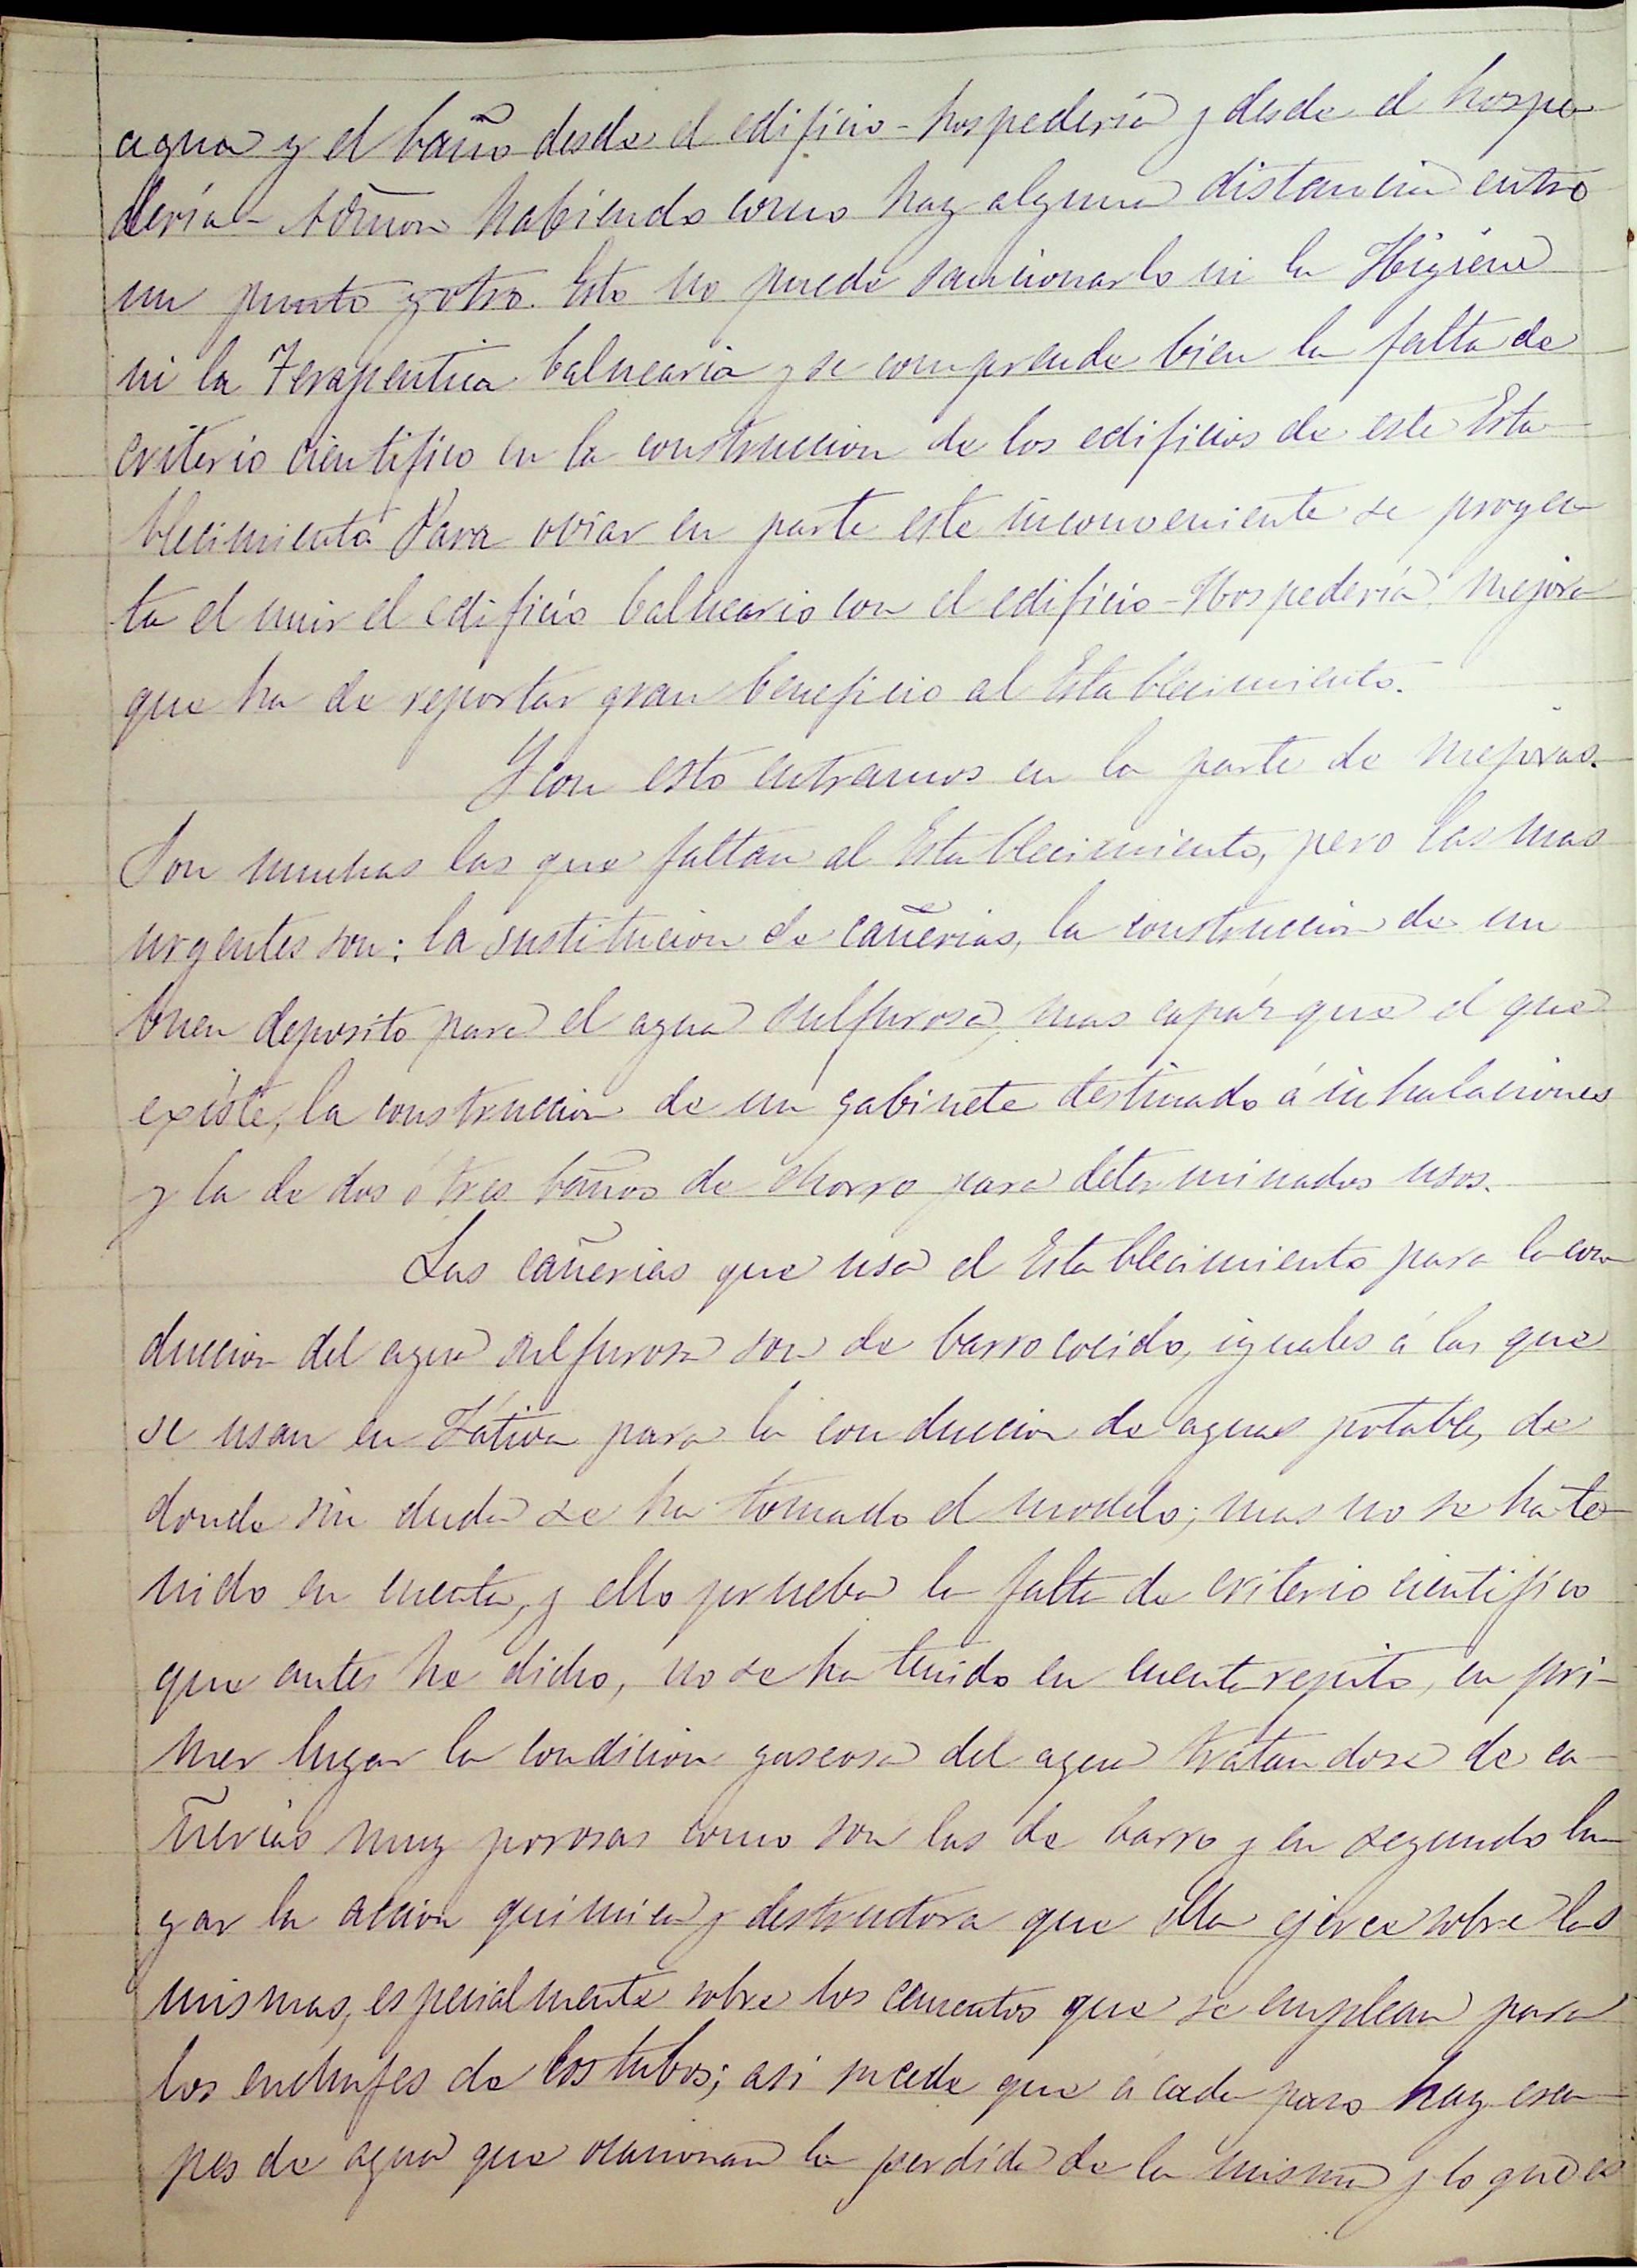 agua y el baño desde el edificio-hospedería y desde el hospe-
dería- habiendo como hay alguna distancia entre
un punto y otro. Esto no puede sancionarlo ni la Higiene
ni la Terapeutica balnearia y se comprende bien la falta de
criterio cientifico en la construccion de los edificios de este Esta-
blecimiento. Para obiar en parte este inconveniente se proyec-
ta el unir el edificio balneario con el edificio-Hospedería, mejora
que ha de reportar gran beneficio al Establecimiento.
Y con esto entramos en la parte de mejoras.
Son muchas las que faltan al Establecimiento, pero las mas
urgentes son: la sustitucion de cañerias, la construccion de un
buen deposito para el agua sulfurosa, mas capáz que el que
existe, la construccion de un gabinete destinado á inhalaciones
y la de dos ó tres baños de chorro para determinados usos.
Las cañerias que usa el Establecimiento para la con-
duccion del agua sulfurosa son de barro cocido, iguales á las que
se usan en Játiva para la conduccion de aguas potables, de
donde sin duda se ha tomado el modelo; mas no se ha te-
nido en cuenta, y ello prueba la falta de criterio cientifico
que antes he dicho, no se ha tenido en cuenta repito, en pri-
mer lugar la condicion gaseosa del agua tratandose de ca-
ñerias muy porosas como son las de barro y en segundo lu-
gar la accion quimica y destructora que ella ejerce sobre las
mismas, especialmente sobre los cementos que se emplean para
los enchufes de los tubos; asi sucede que á cada paso hay esca-
pes de agua que ocasionan la perdida de la misma y lo que es